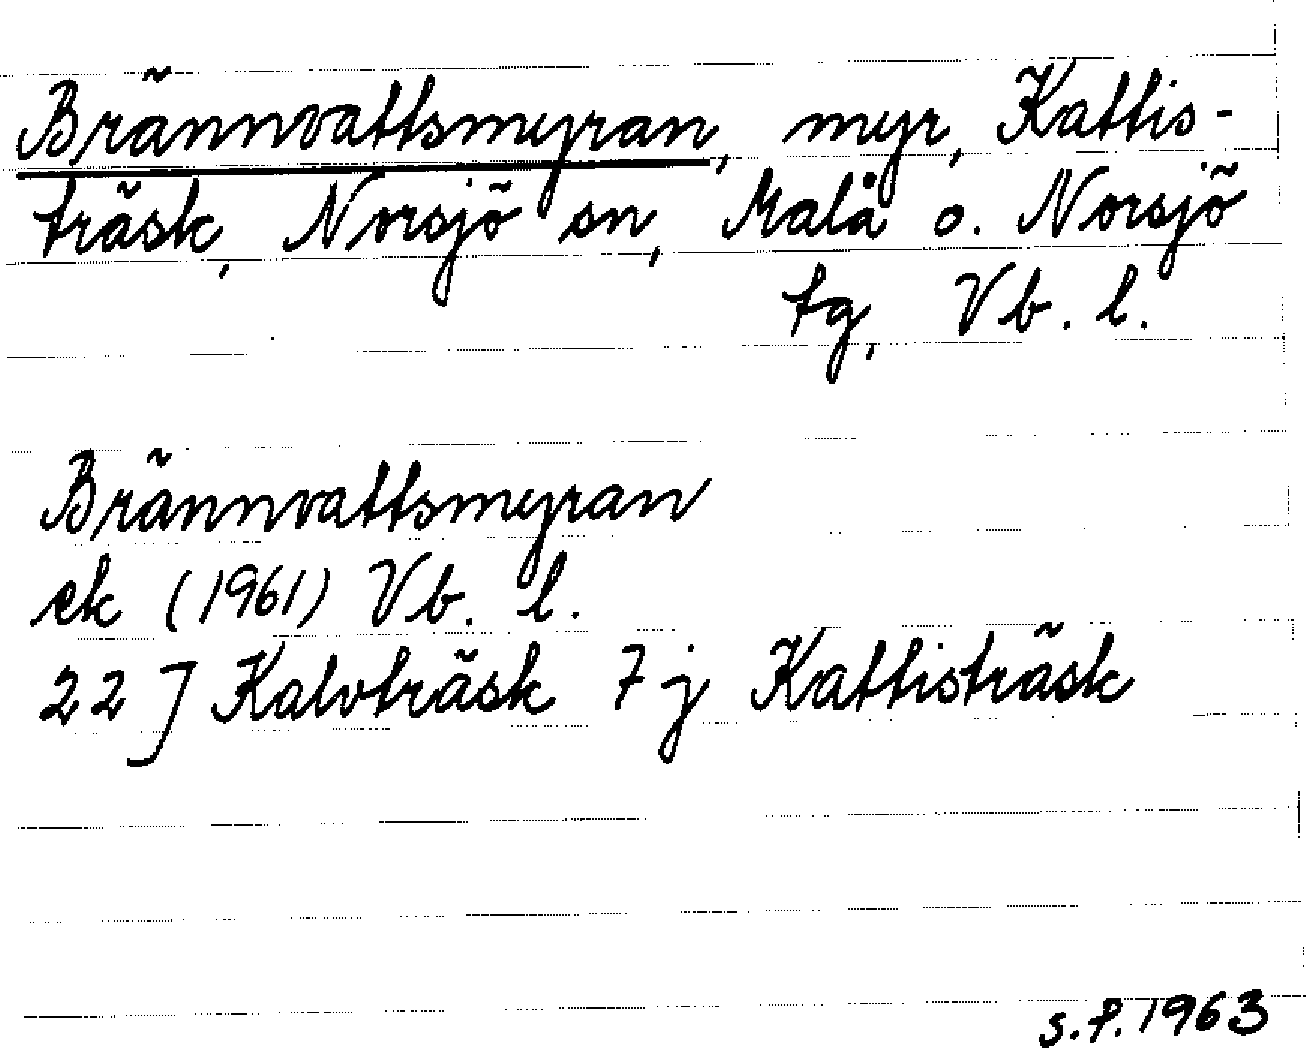 Brännvattsmyran, myr, Kattis-
träsk, Norsjö sn, Malå o. Norsjö
tg, Vb. l.
Brännvattsmyran
ek (1961) Vb. l.
22 J Kalvträsk 7 j Kattisträsk
s.f. 1963